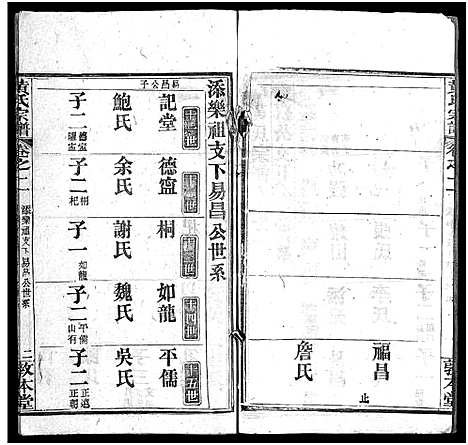 黃氏宗譜
福昌 止
詹氏
敦本堂
添樂祖支下易昌公世系
易昌公子
十一世
記堂
鮑氏
子二 德甯
十二世
德甯
余氏
子二 桐 杞
十三世
桐
謝氏
子一 如龍
十四世
如龍
魏氏
子二 平儒 山有
十五世
平儒
吳氏
子二 正進 正朝
黃氏宗譜
添樂祖支下易昌公世系
二 敦本堂